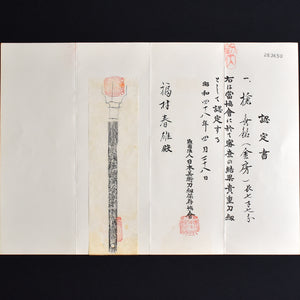 認定書
一、槍 無銘(金房)長七寸七分
右は當協會に於て審査の結果貴重刀剣
として認定する
昭和四十八年四月二十八日
財團法人日本美術刀劍保存協會
福村春雄殿